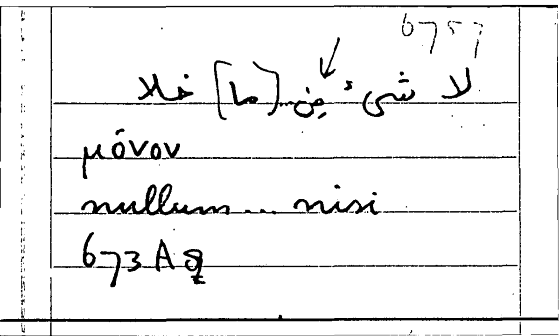 6757
لا شىء مِن (ما) خلا
μόνον
nullum... nisi
673 A 8